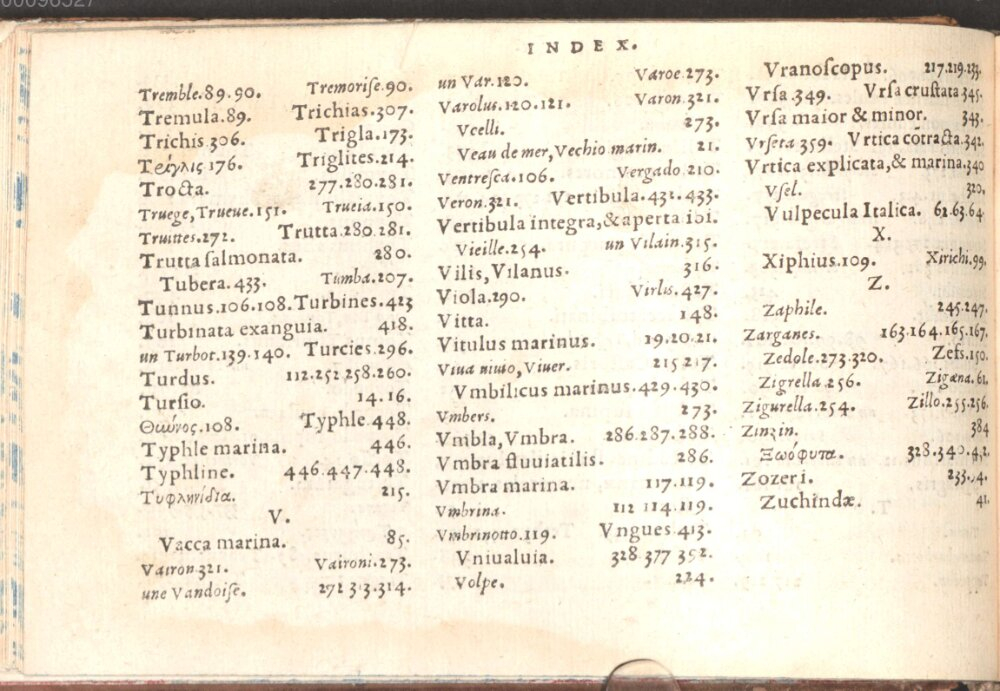 00096527
INDEX.
Tremble.89.90. Tremorise.90.
Tremula.89. Trichias.307.
Trichis.306. Trigla.173.
176. Triglites.214.
Trocta. 277.280.281.
Truege,Trueue.151. Trueia.150.
Truittes.272. Trutta.280.281.
Trutta salmonata. 280.
Tubera.433. Tumba.207.
Tunnus.106.108. Turbines.423
Turbinata exanguia. 418.
un Turbot.139.140. Turcies.296.
Turdus. 112.252 258.260.
Tursio. 14.16.
Θύννος.108. Typhle.448.
Typhle marina. 446.
Typhline. 446.447.448.
Τυφληνίδια. 215.
V.
Vacca marina. 85.
Vairon.321. Vaironi.273.
une Vandoise. 272 313.314.
un Var.120. Varoe.273.
Varolus.120.121. Varon.321.
Vcelli. 273.
Veau de mer,Vechio marin. 21.
Ventresca.106. Vergado.210.
Veron.321. Vertibula.432.433.
Vertibula integra,& aperta ibi.
Vieille.254. un Vilain.315.
Vilis,Vilanus. 316.
Viola.290. Virlis.427.
Vitta. 148.
Vitulus marinus. 19.20.21.
Viua niuio,Viuer. 215 217.
Vmbilicus marinus.429.430.
Vmbers. 273.
Vmbla,Vmbra. 286.287.288.
Vmbra fluuiatilis. 286.
Vmbra marina. 117.119.
Vmbrina. 112 114.119.
Vmbrinotto.119. Vngues.413.
Vniualuia. 328.377 392.
Volpe. 224.
Vranoscopus. 217.219.233.
Vrsa.349. Vrsa crustata.345.
Vrsa maior & minor. 343.
Vrseta 359. Vrtica cōtracta.342.
Vrtica explicata,& marina.340
Vsel. 320.
Vulpecula Italica. 62.63.64.
X.
Xiphius.109. Xirichi.99.
Z.
Zaphile. 245.247.
Zarganes. 163.164.165.167.
Zedole.273.320. Zefs.150.
Zigrella.256. Zigæna.61.
Zigurella.254. Zillo.255.256.
Zinzin. 384
Ζωόφυτα. 328.340.432.
Zozeri.
Zuchindæ. 41.